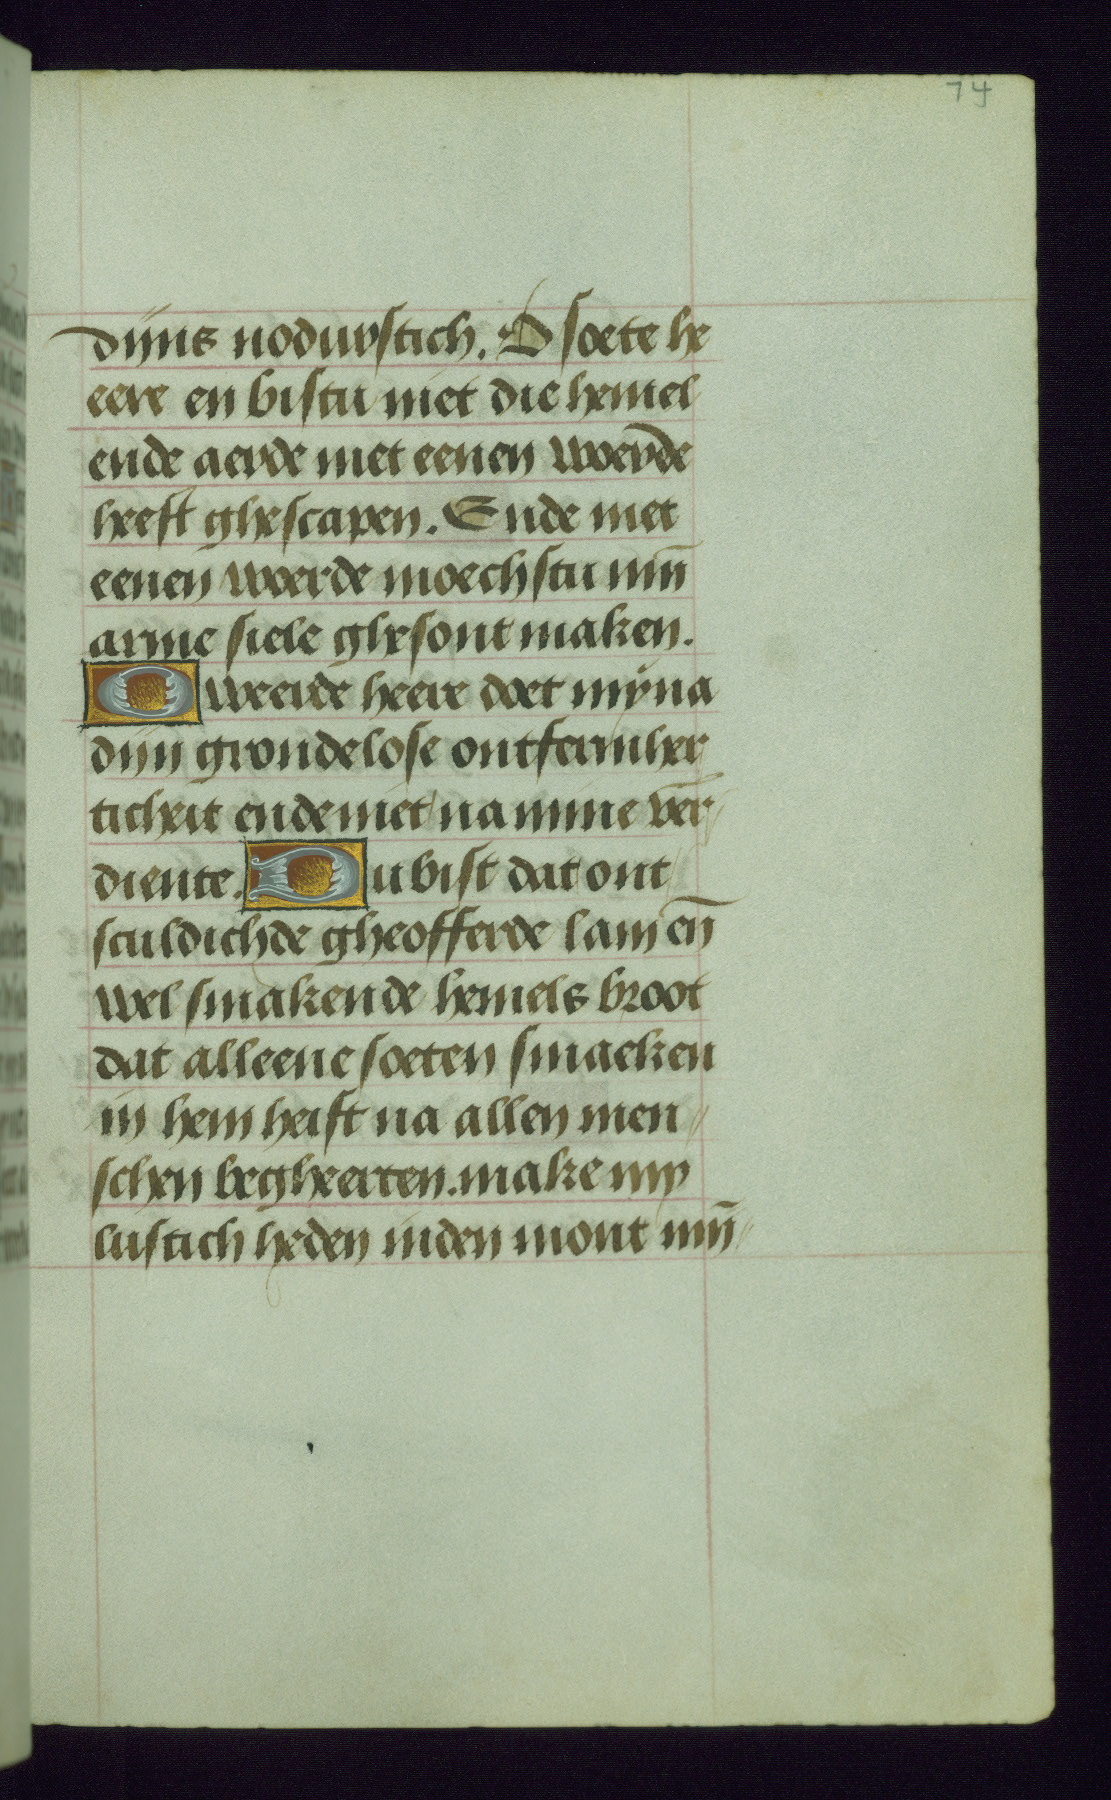 74
dijns nodurftich. O soete he
eere en bistu niet die hemel
ende aerde met eenen woerde
heeft ghescapen. Ende met
eenen woerde moechstu mijn̄
arme siele ghesont maken.
O weerde heere doet mij na
dijn grondelose ontfermher
ticheit ende niet na mine ver
diente. Du bist dat ont
sculdichde gheofferde lam en̄
wel smakende hemels broot
dat alleene soeten smaeken
in hem heift na allen men
schen begheerten. make my
lustich heden inden mont mijn̄